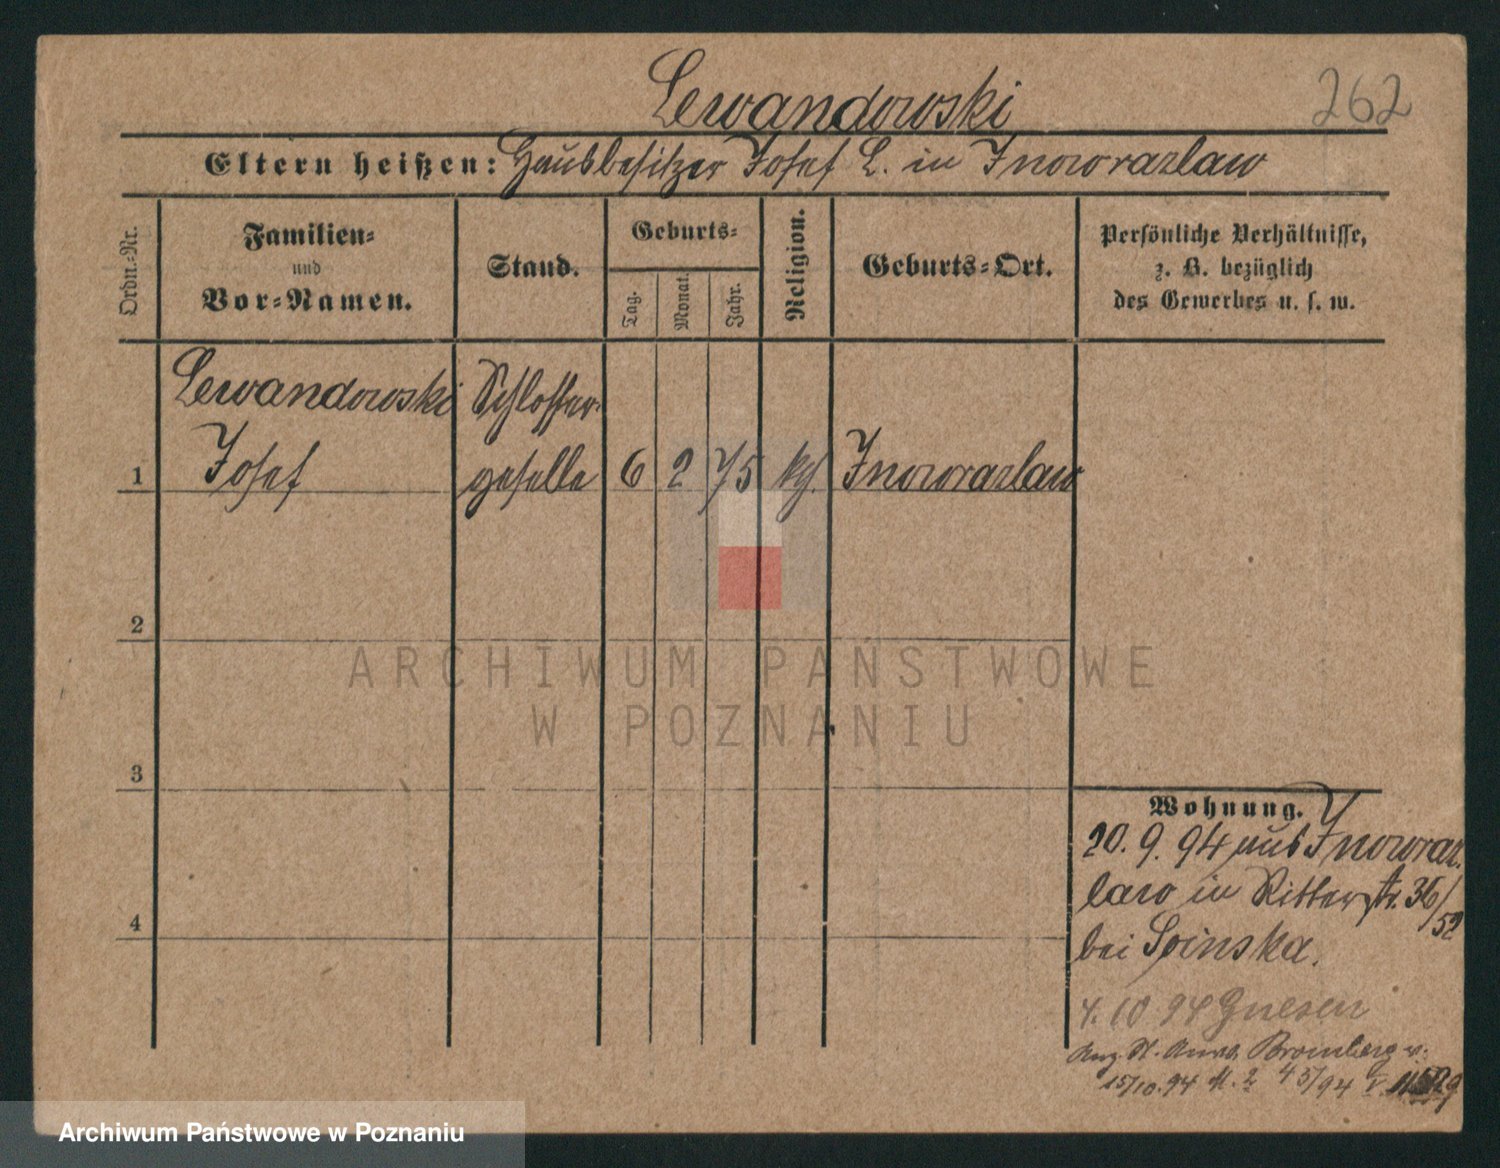 262
Lewandowski
Eltern heißen: Hausbesitzer Josef L. in Inowrazlaw
Ordn.-Nr.
Familien-
und
Vor-Namen.
Stand.
Geburts-
Tag.
Monat.
Jahr.
Religion.
Geburts-Ort.
Persönliche Verhältnisse,
z. B. bezüglich
des Gewerbes u. s. w.
Lewandowski Schlosser-
1 Josef geselle 6 2 75 kth. Inowrazlaw
2
3
4
ARCHIWUM PAŃSTWOWE
W POZNANIU
Wohnung.
20. 9. 94 aus Inowraz-
law in Ritterstr. 36/52
bei
4. 10 94 Gnesen
Bromberg
15/10. 94
Archiwum Państwowe w Poznaniu